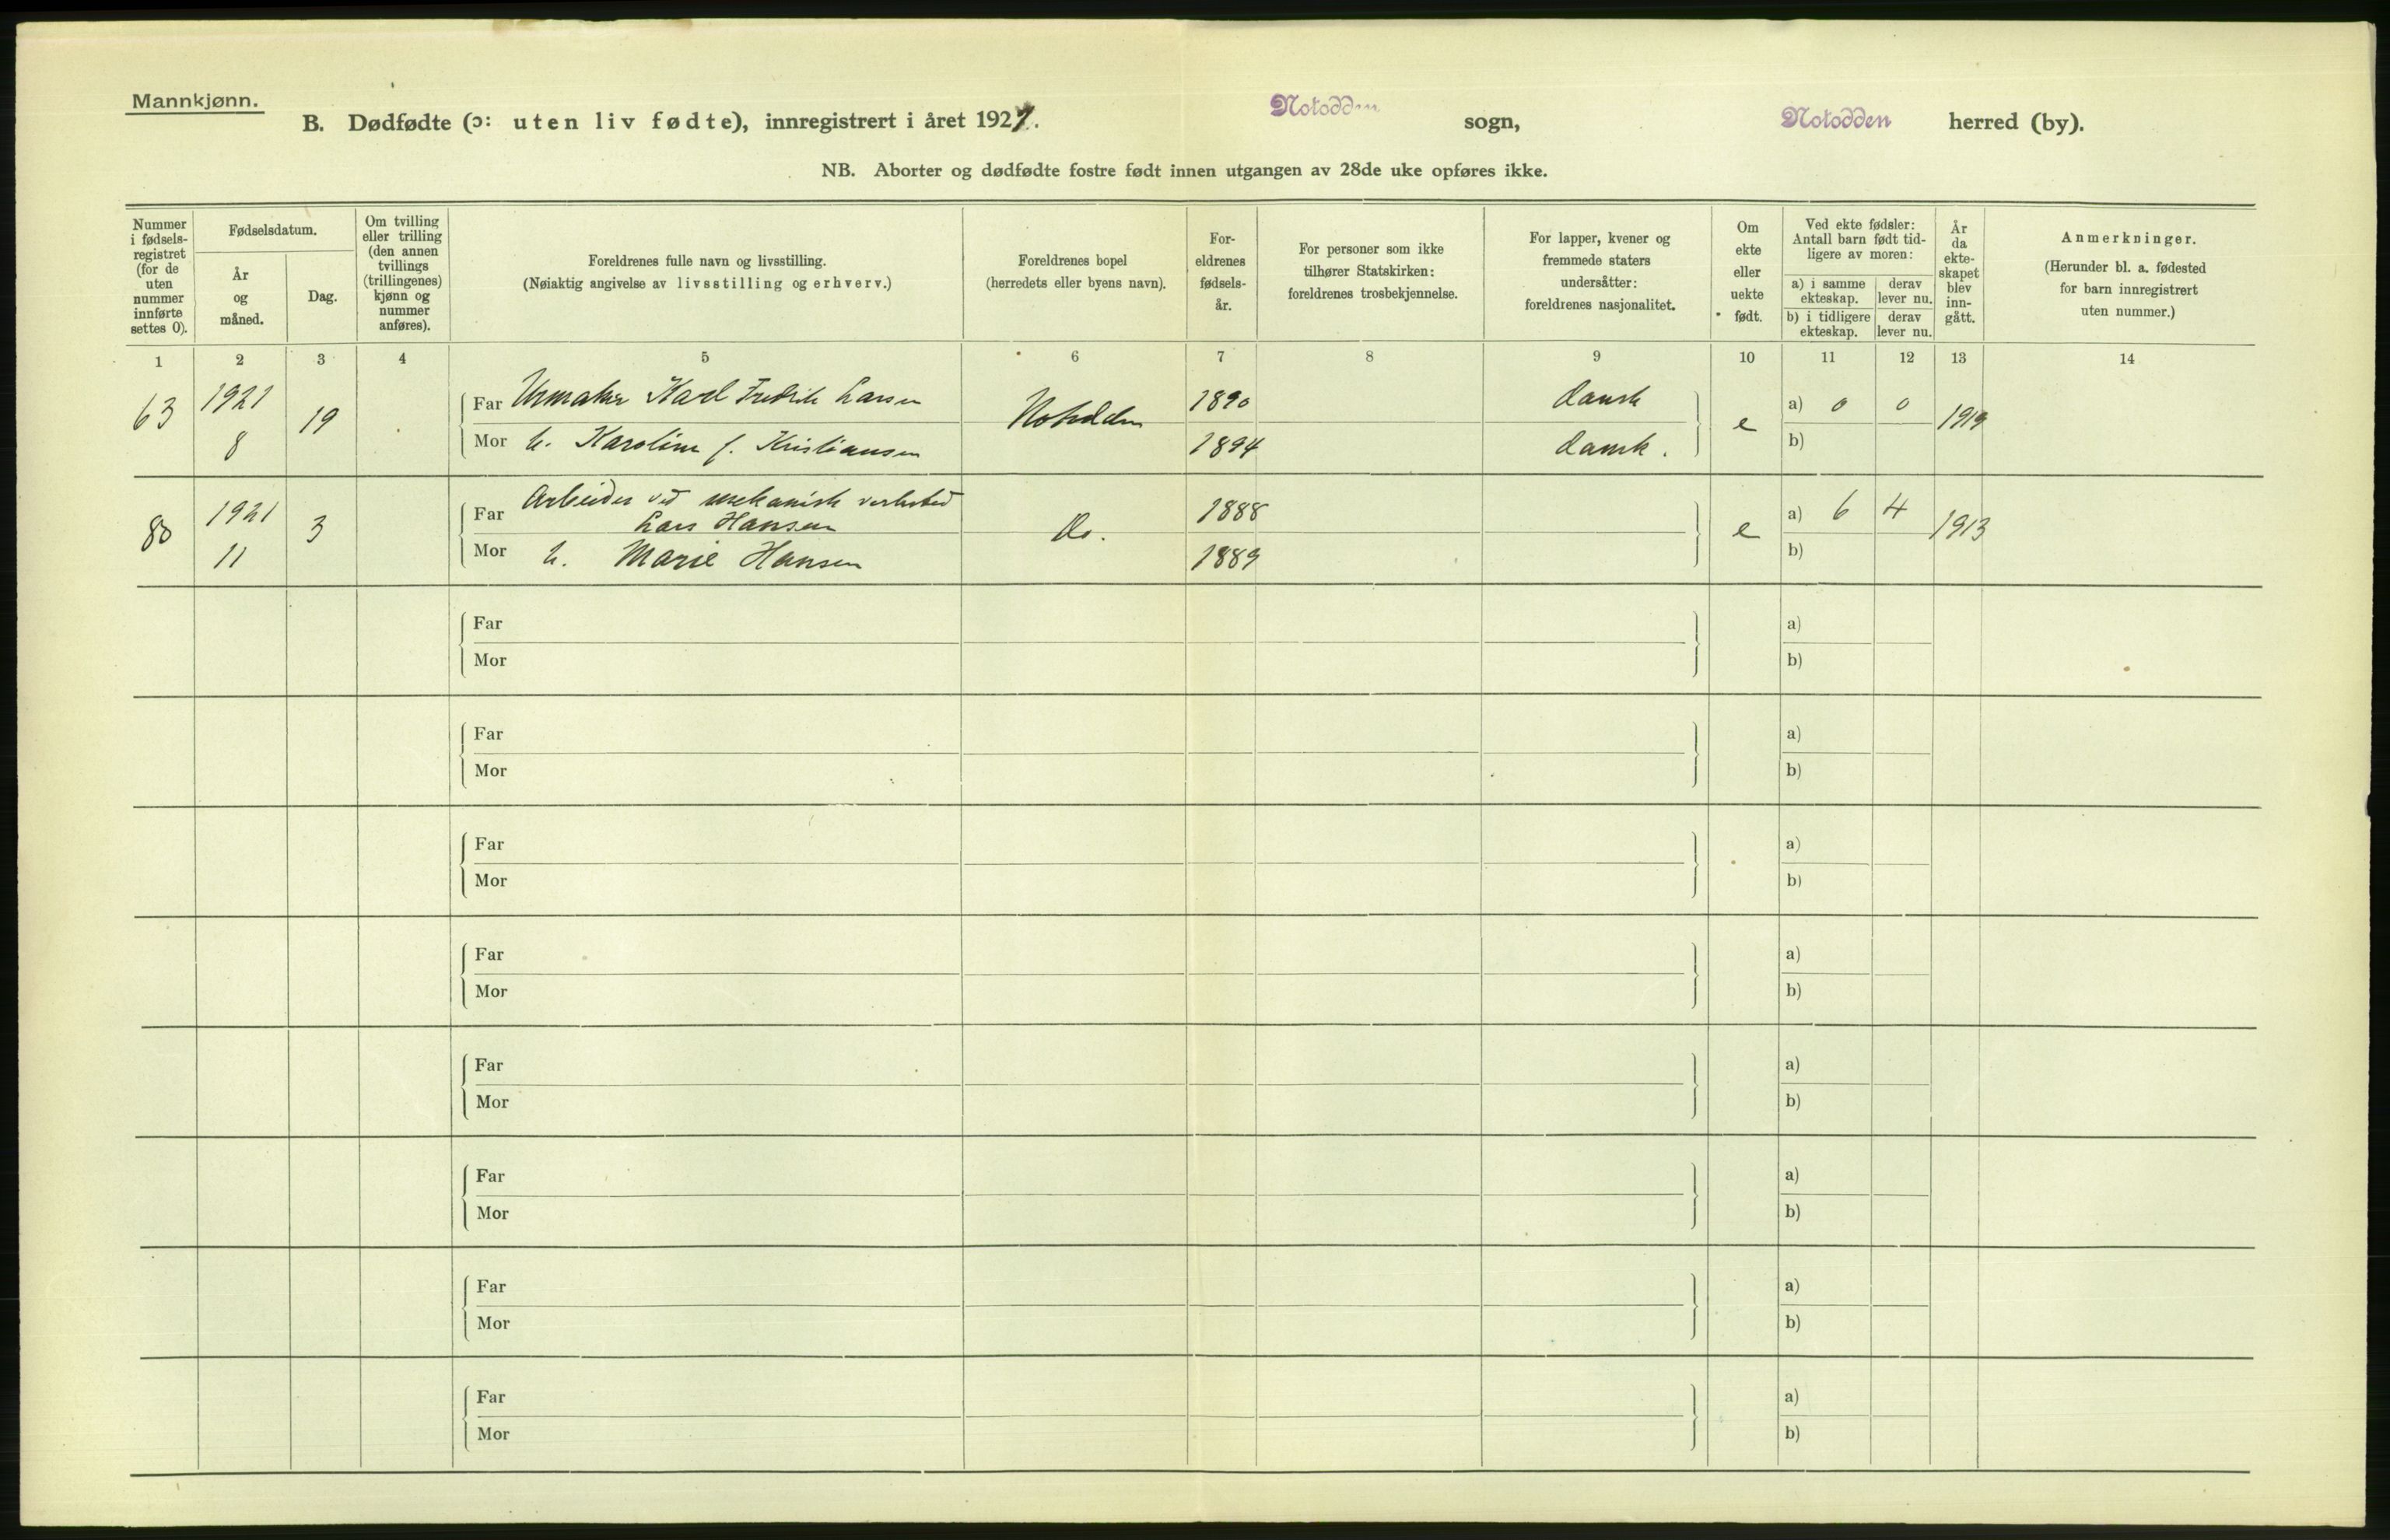 Mannkjønn.
B. Dødfødte (ɔ: uten liv fødte), innregistrert i året 1921. Notodden sogn, Notodden herred (by).
NB. Aborter og dødfødte fostre født innen utgangen av 28de uke opføres ikke.
Nummer i fødsels-registret (for de uten nummer innførte settes 0).
Fødselsdatum.
År og måned.
Dag.
Om tvilling eller trilling (den annen tvillings (trillingenes) kjønn og nummer anføres).
Foreldrenes fulle navn og livsstilling.
(Nøiaktig angivelse av livsstilling og erhverv.)
Foreldrenes bopel
(herredets eller byens navn).
For-eldrenes fødsels-år.
For personer som ikke tilhører Statskirken: foreldrenes trosbekjennelse.
For lapper, kvener og fremmede staters undersåtter: foreldrenes nasjonalitet.
Om ekte eller uekte født.
Ved ekte fødsler: Antall barn født tid-ligere av moren:
a) i samme ekteskap. derav lever nu.
b) i tidligere ekteskap. derav lever nu.
År da ekte-skapet blev inn-gått.
Anmerkninger.
(Herunder bl. a. fødested for barn innregistrert uten nummer.)
1 2 3 4 5 6 7 8 9 10 11 12 13 14
63 1921 8 19
Far Urmaker Karl Fredrik Larsen Notodden 1890 dansk e a) 0 0 1919
Mor h. Karoline f. Kristiansen 1894 dansk. b)
80 1921 11 3
Far Arbeider ved mekanisk verksted
Lars Hansen Do. 1888 e a) 6 4 1913
Mor h. Marie Hansen 1889 b)
Far a)
Mor b)
Far a)
Mor b)
Far a)
Mor b)
Far a)
Mor b)
Far a)
Mor b)
Far a)
Mor b)
Far a)
Mor b)
Far a)
Mor b)